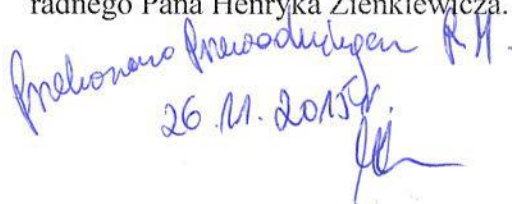 radnego Pana Henryka Zienkiewicza.
Przekonano Przewodniczącemu R.M.
26.11.2015r.